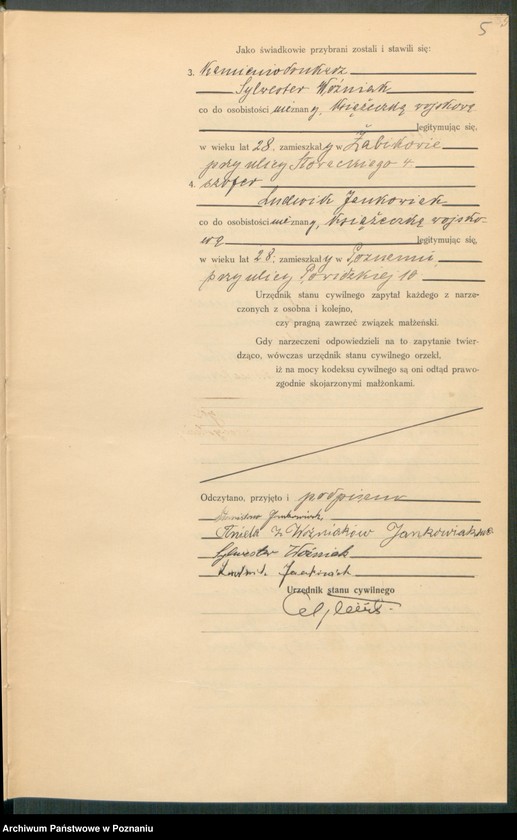 5
Jako świadkowie przybrani zostali i stawili się:
3. Kamieniodrukarz
Sylwester Woźniak
co do osobistości nieznany, książeczką wojskową
legitymując się,
w wieku lat 28. zamieszkały w Żabikowie
przy ulicy 4
4. szofer
Ludwik Jankowiak
co do osobistości nieznany, książeczką wojsko-
wą legitymując się,
w wieku lat 28. zamieszkały w Poznaniu
przy ulicy 10
Urzędnik stanu cywilnego zapytał każdego z narze-
czonych z osobna i kolejno,
czy pragną zawrzeć związek małżeński.
Gdy narzeczeni odpowiedzieli na to zapytanie twier-
dząco, wówczas urzędnik stanu cywilnego orzekł,
iż na mocy kodeksu cywilnego są oni odtąd prawo-
zgodnie skojarzonymi małżonkami.
Odczytano, przyjęto i podpisano
Stanisław Jankowiak
Aniela z Woźniaków Jankowiakowa
Sylwester Woźniak
Ludwik Jankowiak
Urzędnik stanu cywilnego
Archiwum Państwowe w Poznaniu